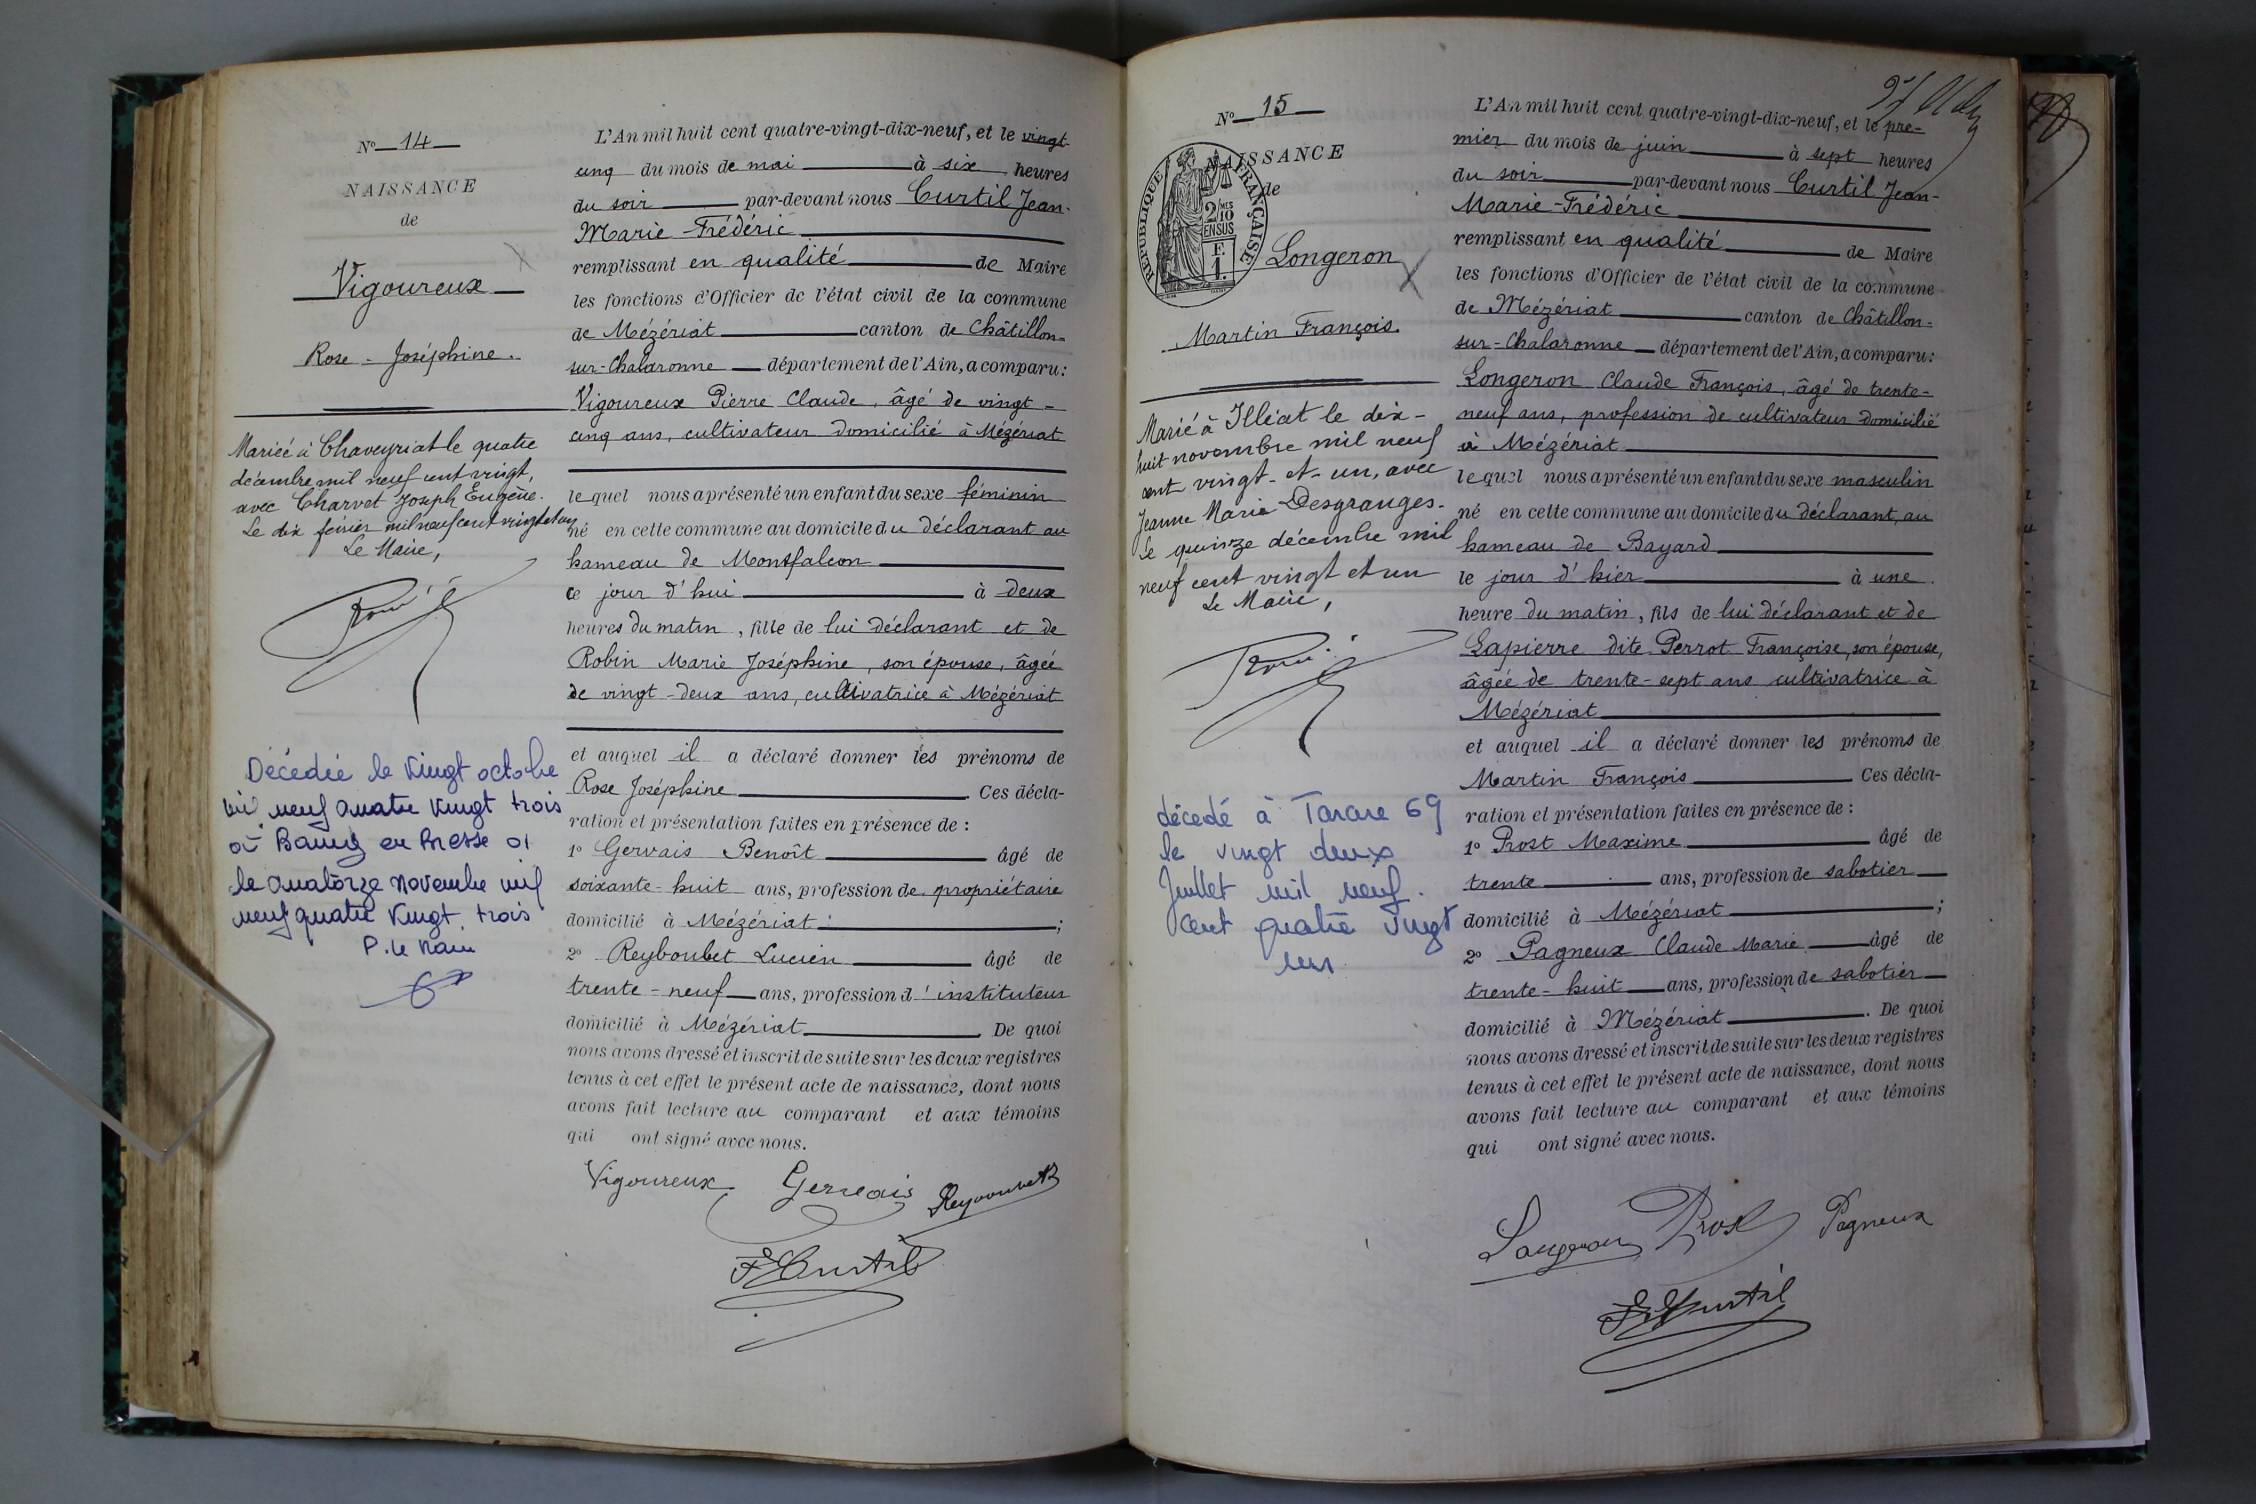 N° 14
NAISSANCE
de
Vigoureux
Rose - Joséphine.
Mariée à Chaveyriat le quatre
décembre mil neuf cent vingt,
avec Charvet Joseph Eugène.
Le dix février mil neuf cent vingt et un
Le Maire,
Décédée le vingt octobre
mil neuf quatre vingt trois
à Bourg en Bresse 01
le quatorze novembre mil
neuf quatre vingt trois
P. le Maire
L'An mil huit cent quatre-vingt-dix-neuf, et le vingt-
cinq du mois de mai à six heures
du soir par-devant nous Curtil Jean-
Marie-Frédéric
remplissant en qualité de Maire
les fonctions d'Officier de l'état civil de la commune
de Mézériat canton de Châtillon-
sur-Chalaronne département de l'Ain, a comparu:
Vigoureux Pierre Claude, âgé de vingt-
cinq ans, cultivateur domicilié à Mézériat
lequel nous a présenté un enfant du sexe féminin
né en cette commune au domicile du déclarant au
hameau de Montfalcon
ce jour d'hui à deux
heures du matin, fille de lui déclarant et de
Robin Marie Joséphine, son épouse, âgée
de vingt-deux ans, cultivatrice à Mézériat
et auquel il a déclaré donner les prénoms de
Rose Joséphine. Ces décla-
ration et présentation faites en présence de :
1° Gervais Benoît âgé de
soixante-huit ans, profession de propriétaire
domicilié à Mézériat ;
2° Reyboubet Lucien âgé de
trente-neuf ans, profession d'instituteur
domicilié à Mézériat. De quoi
nous avons dressé et inscrit de suite sur les deux registres
tenus à cet effet le présent acte de naissance, dont nous
avons fait lecture au comparant et aux témoins
qui ont signé avec nous.
Vigoureux Gervais Reyboubet
F Curtil
N° 15
NAISSANCE
de
RÉPUBLIQUE FRANÇAISE
2/10
MES
EN SUS
F.
1.
Longeron
Martin François.
Marié à Illiat le dix-
huit novembre mil neuf
cent vingt-et-un, avec
Jeanne Marie Desgranges.
Le quinze décembre mil
neuf cent vingt et un
Le Maire,
décédé à Tarare 69
le vingt deux
Juillet mil neuf
cent quatre vingt
un
L'An mil huit cent quatre-vingt-dix-neuf, et le pre-
mier du mois de juin à sept heures
du soir par-devant nous Curtil Jean-
Marie-Frédéric
remplissant en qualité de Maire
les fonctions d'Officier de l'état civil de la commune
de Mézériat canton de Châtillon-
sur-Chalaronne département de l'Ain, a comparu:
Longeron Claude François, âgé de trente-
neuf ans, profession de cultivateur domicilié
à Mézériat
lequel nous a présenté un enfant du sexe masculin
né en cette commune au domicile du déclarant, au
hameau de Bayard
le jour d'hier à une
heure du matin, fils de lui déclarant et de
Lapierre dite Perrot Françoise, son épouse,
âgée de trente-sept ans cultivatrice à
Mézériat
et auquel il a déclaré donner les prénoms de
Martin François Ces décla-
ration et présentation faites en présence de :
1° Prost Maxime âgé de
trente ans, profession de sabotier
domicilié à Mézériat ;
2° Pagneux Claude Marie âgé de
trente-huit ans, profession de sabotier
domicilié à Mézériat. De quoi
nous avons dressé et inscrit de suite sur les deux registres
tenus à cet effet le présent acte de naissance, dont nous
avons fait lecture au comparant et aux témoins
qui ont signé avec nous.
Longeron Prost Pagneux
F Curtil